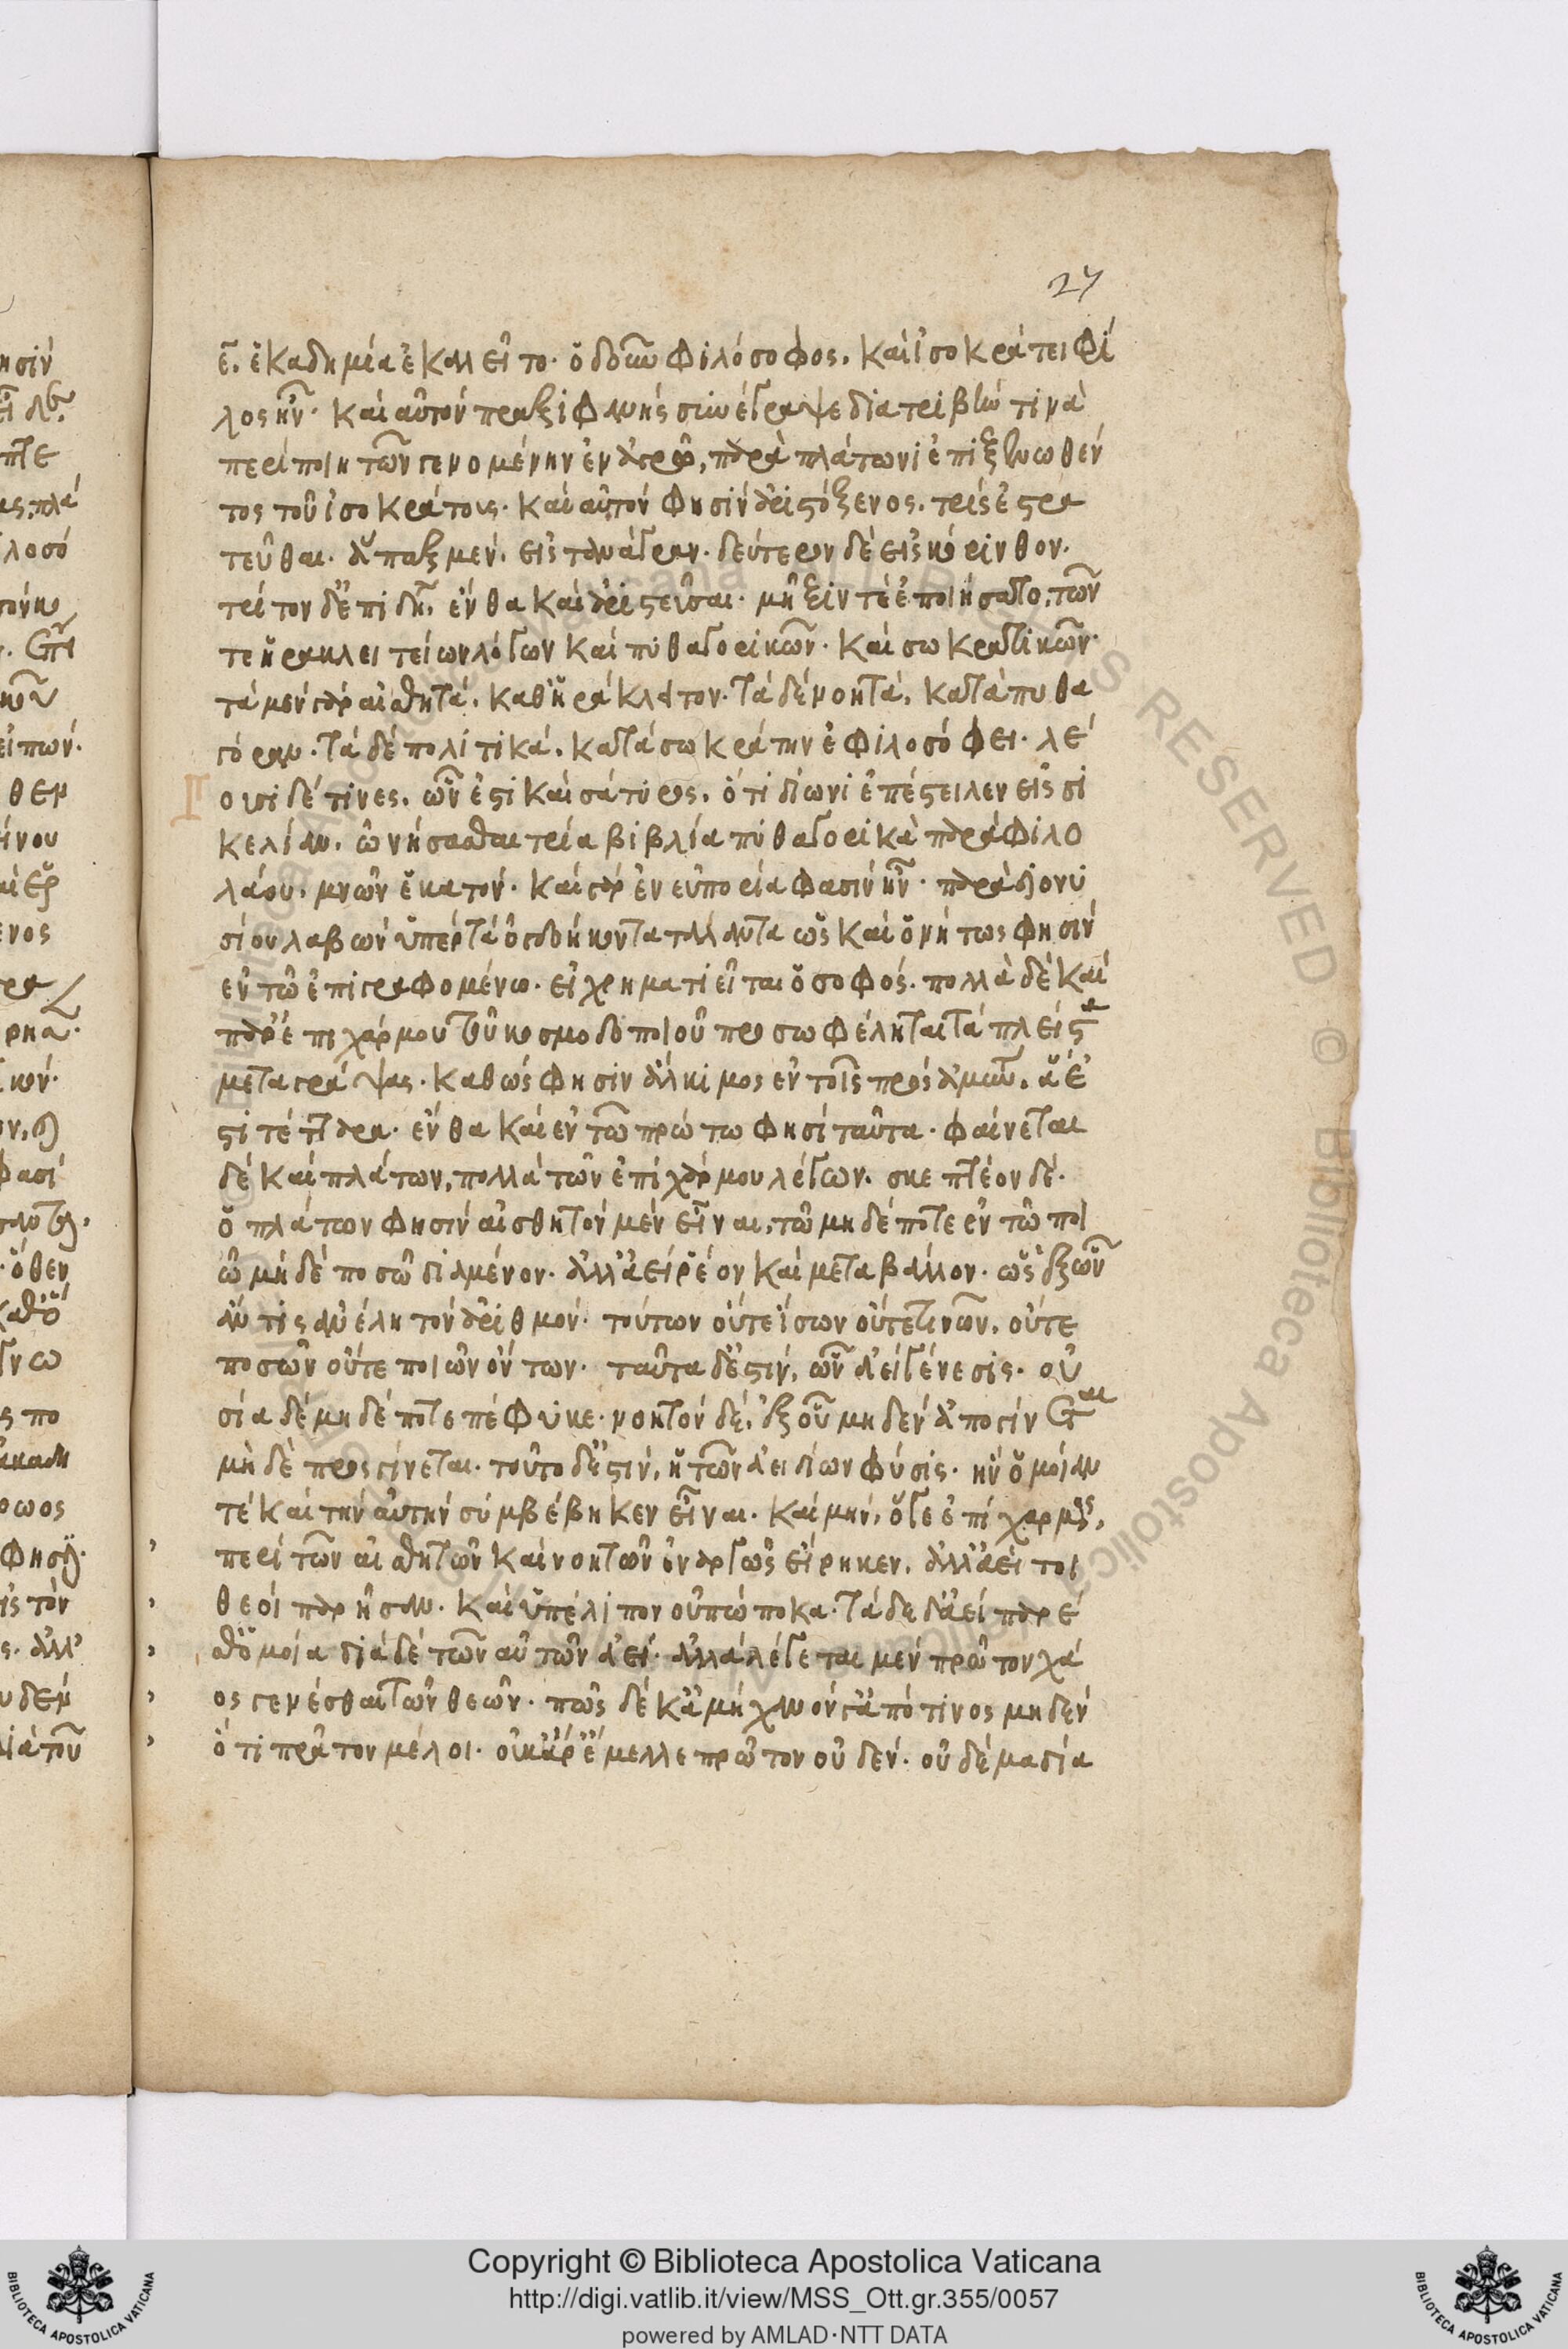 27
ε. ἑκαδημία ἐκαλεῖτο. ὁ δ' οὖν φιλόσοφος. καὶ ἰσοκράτει φί
λος ἦν. καὶ αὐτὸν πραξιφάνης συνέγραψε διατριβήν τινα
περὶ ποιητῶν γενομένην ἐν ἀγρῷ, παρὰ πλάτωνι ἐπιξενωθέν
τος τοῦ ἰσοκράτους. καὶ αὐτόν φησὶν ἀριστόξενος. τρὶς ἐστρα
τεῦθαι. ἅπαξ μὲν. εἰς τάναγραν. δεύτερον δὲ εἰς κόρινθον.
τρίτον δ' ἐπὶ δη. ἔνθα καὶ ἀριστεῖσαι. μῆξίν τε ἐποιήσατο, τῶν
τε ἡρακλειτείων λόγων καὶ πυθαγορικῶν. καὶ σωκρατικῶν.
τὰ μὲν γὰρ αἰσθητὰ. καθ' ἡράκλειτον. τὰ δὲ νοητὰ. κατὰ πυθα
γόραν. τὰ δὲ πολιτικὰ. κατὰ σωκράτην ἐφιλοσόφει. λέ
ουσι δέ τινες. ὧν ἐστὶ καὶ σάτυρος. ὅτι δίωνι ἐπέστειλεν εἰς σι
κελίαν. ὠνήσασθαι τρία βιβλία πυθαγορικὰ παρὰ φιλο
λάου. μνῶν ἑκατόν. καὶ γὰρ ἐν εὐπορία φασὶν ἦν. παρὰ διονυ
σίου λαβὼν ὑπὲρ τὰ ὀγδοήκοντα τάλαντα ὡς καὶ ὀνήτωρ φησὶν
ἐν τῶ ἐπιγραφομένω. εἰ χρηματιεῖται ὁ σοφός. πολλὰ δὲ καὶ
παρ' ἐπιχάρμου τοῦ κωσμοδοποιοῦ προσωφέληται τὰ πλεῖστα
μεταγράψας. καθώς φησιν ἄλκιμος ἐν τοῖς πρὸς ἀμων. ἅ ἐ
στι τέτταρα. ἔνθα καὶ ἐν τῶ πρώτω φησὶ ταῦτα. φαίνεται
δὲ καὶ πλάτων, πολλὰ τῶν ἐπιχάρμου λέγων. σκεπτέον δὲ.
ὁ πλάτων φησὶν αἰσθητὸν μὲν εἶναι, τῶ μηδέποτε ἐν τῶ ποι
ῶ μὴδὲ ποσῶ διαμένον. ἀλλ' ἀεὶ ῥέον καὶ μεταβάλλον. ὡς ἐξ ὧν
ἄν τις ἀνέλη τὸν ἀριθμόν. τούτων οὔτε ἴσων οὔτε τινῶν. οὔτε
ποσῶν οὔτε ποιῶν ὄντων. ταῦτα δ' ἐστὶν, ὧν ἀεὶ γένεσις. οὐ
σία δὲ μηδέποτε πέφυκε. νοητὸν δὲ. ἐξ οὗ μηδὲν ἀπογίνεται
μὴδὲ προσγίνεται. τοῦτο δ' ἐστιν, ἡ τῶν ἀειδίων φύσις. ἣν ὁμοίαν
τὲ καὶ τὴν αὐτὴν συμβέβηκεν εἶναι. καὶ μὴν, ὅγε ἐπίχαρμος,
περὶ τῶν αἰσθητῶν καὶ νοητῶν ἐναργῶς εἴρηκεν. ἀλλ' ἀεί τοι
θεοὶ παρῆσαν. καὶ ὑπέλιπον οὐπώποκα. τὰ δὲ δ' ἀεὶ παρέ
θ' ὁμοία διὰ δὲ τῶν αὐτῶν ἀεί. ἀλλὰ λέγεται μὲν πρῶτον χά
ος γενέσθαι τῶν θεῶν. πῶς δέ κ' ἀμὴχανόν γ' ἀπό τινος μηδὲν
ὅ τι πρᾶτον μέλοι. οὐκ ἄρ' ἔμελλε πρῶτον οὐδέν. οὐδὲ μα δία
Copyright © Biblioteca Apostolica Vaticana
http://digi.vatlib.it/view/MSS_Ott.gr.355/0057
powered by AMLAD·NTT DATA